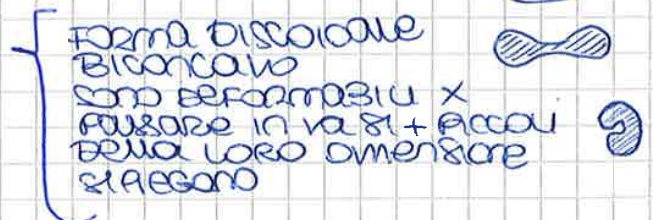 FORMA DISCOIDALE
BICONCAVO
SONO DEFORMABILI X
PASSARE IN VASI + PICCOLI
DELLA LORO DIMENSIONE
SI PIEGANO